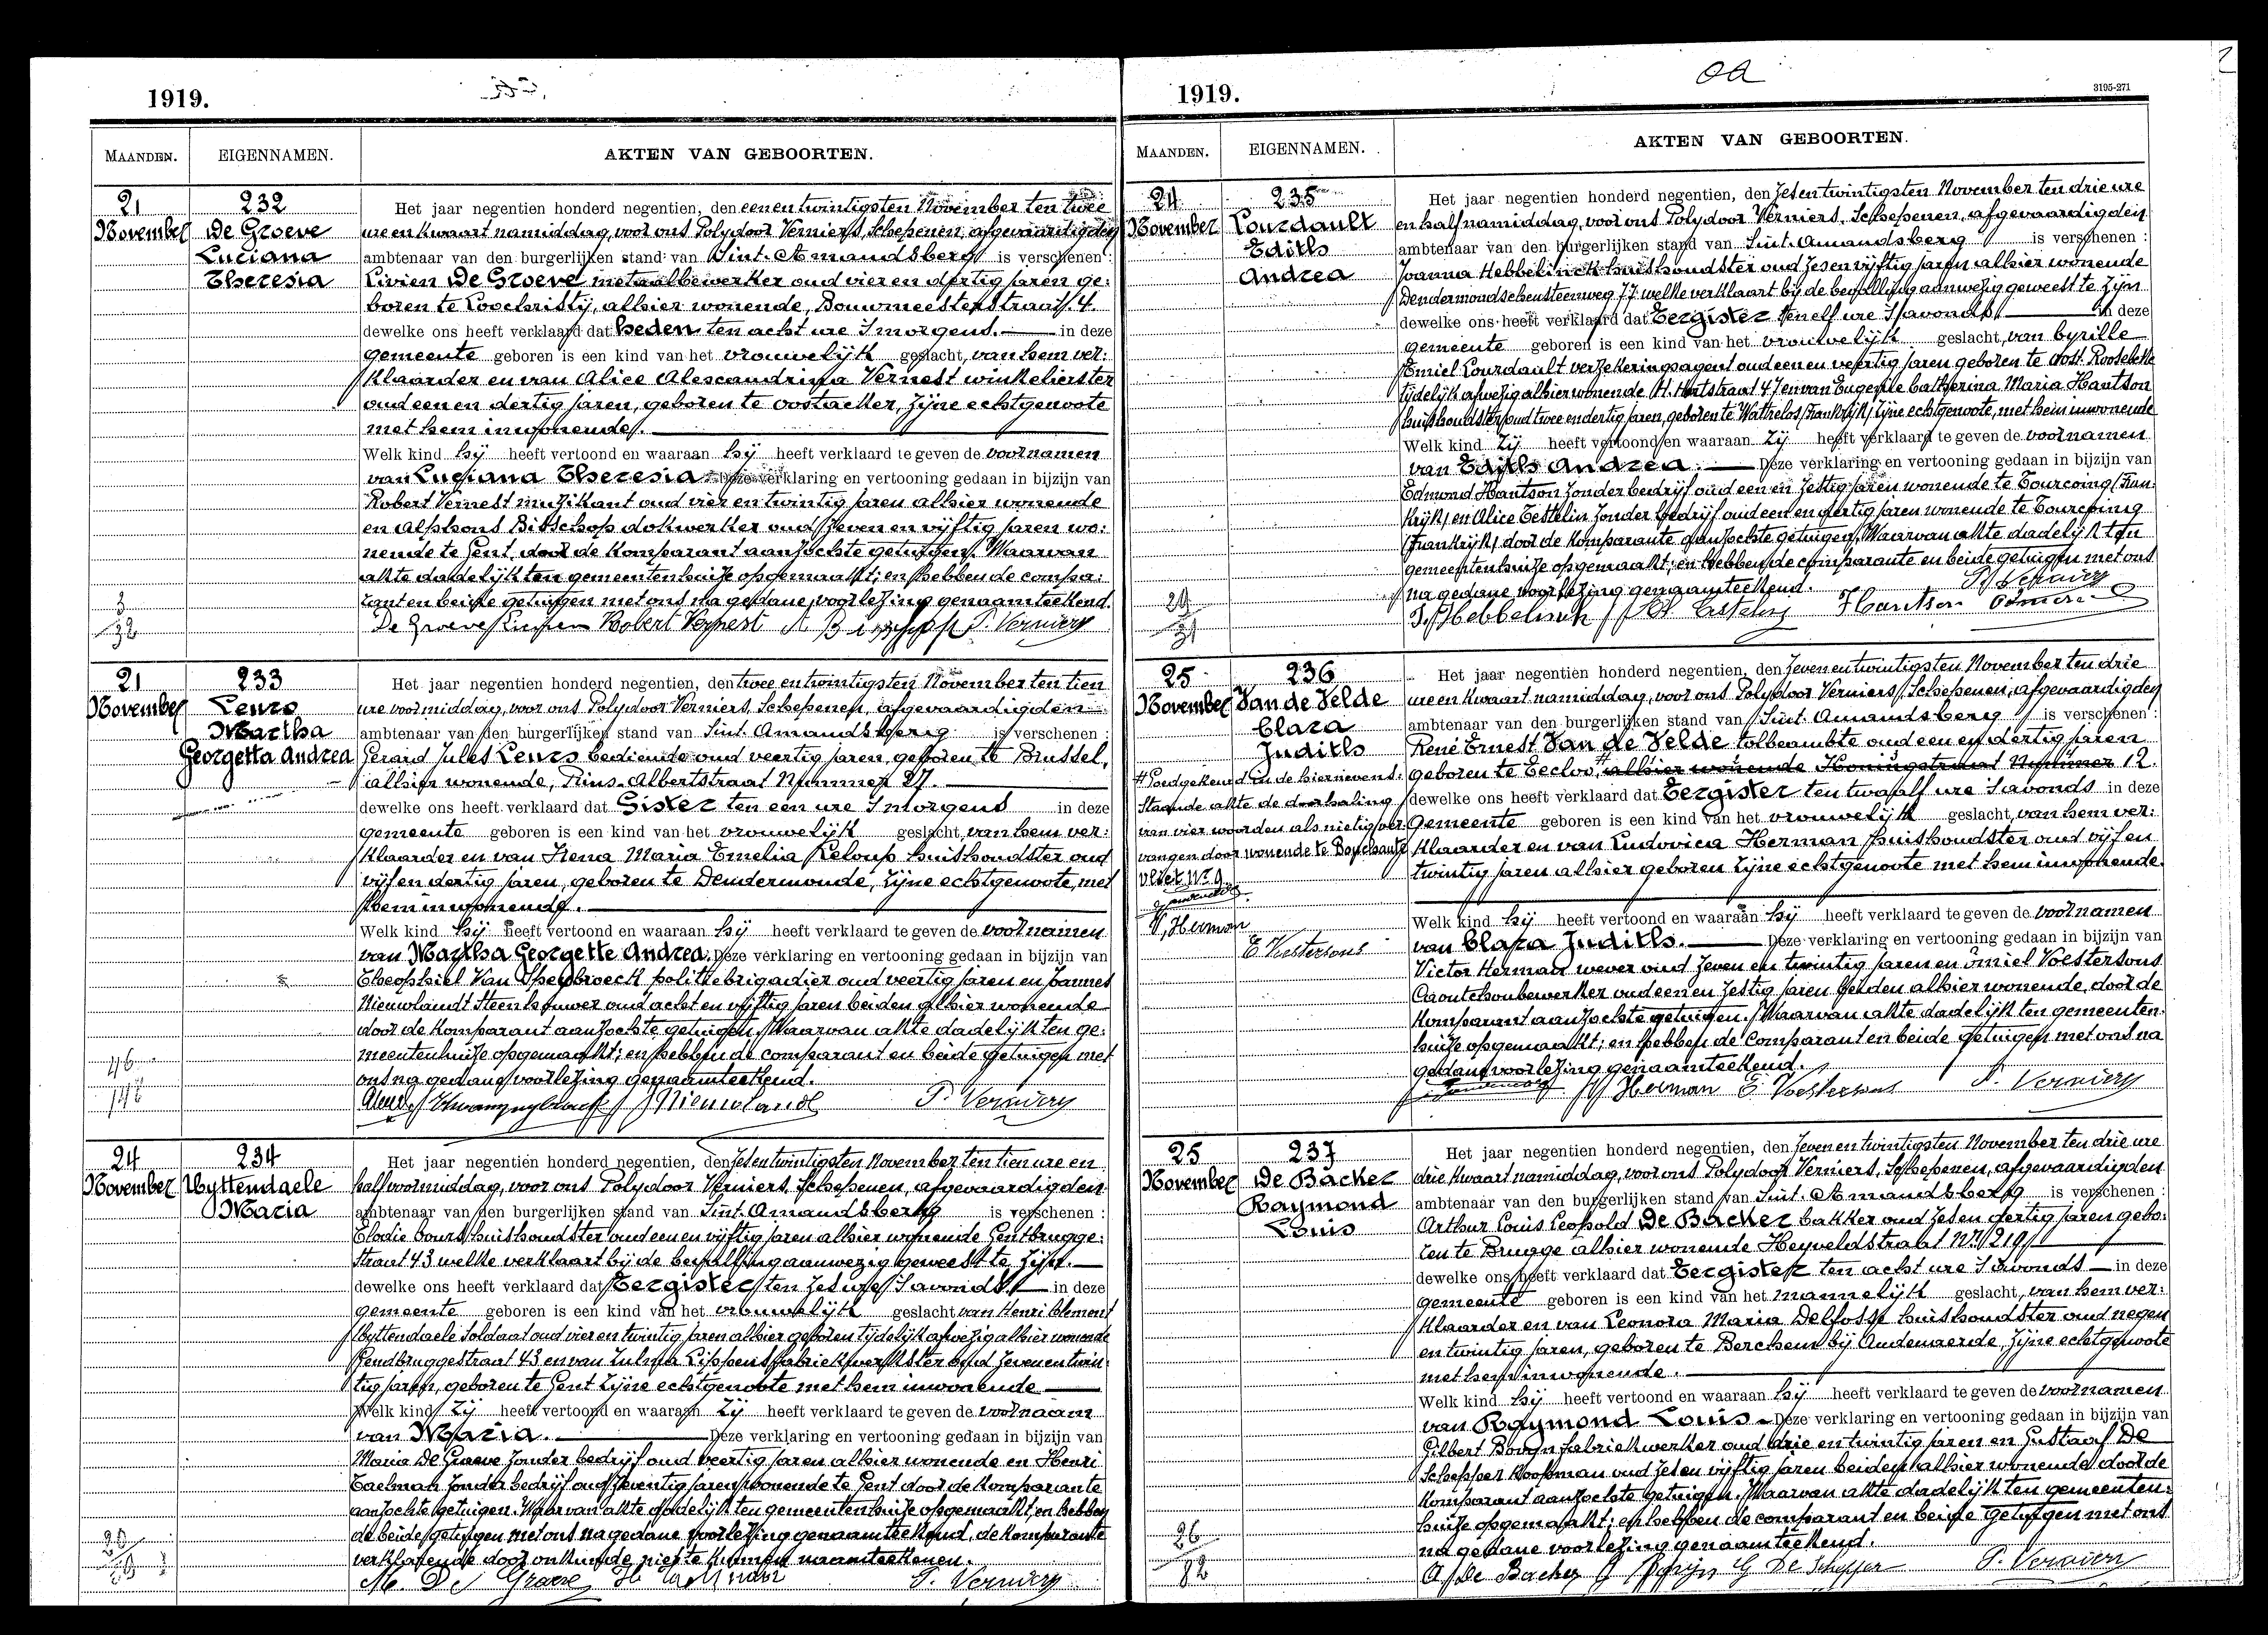 1919.
MAANDEN.
EIGENNAMEN.
AKTEN VAN GEBOORTEN.
21
November
232
De Groeve
Luciana
Theresia
Het jaar negentien honderd negentien, den eenentwintigsten November ten twee
ure en kwaart namiddag, voor ons Polydoor Verniers, Schepenen, afgevaardigden
ambtenaar van den burgerlijken stand van Sint. Amandsberg is verschenen :
Livien De Groeve metaalbewerker oud vier en dertig jaren ge:
boren te Loochristy, alhier wonende, Bouwmeesterstraat. 4.
dewelke ons heeft verklaard dat heden ten acht ure 's morgens. in deze
gemeente geboren is een kind van het vrouwelijk geslacht, van hem ver:
klaarder en van Alice Alescandrina Vernest winkelierster
oud een en dertig jaren, geboren te Oostacker, zijne echtgenoote
met hem inwonende.
Welk kind hij heeft vertoond en waaraan hij heeft verklaard te geven de voornamen
van Luciana Theresia. Deze verklaring en vertooning gedaan in bijzijn van
Robert Vernest muzikant oud vier en twintig jaren alhier wonende
en Alphons Bisschop dokwerker oud zeven en vijftig jaren wo:
nende te Gent door de komparant aanzochte getuigen. Waarvan
akte dadelijk ten gemeentenhuize opgemaakt; en hebben de compa:
rant en beide getuigen met ons na gedane voorlezing genaamteekend.
3
32
De Groeve Robert Vernest A Bisschop P. Verniers
21
November
233
Leurs
Martha
Georgetta Andrea
Het jaar negentien honderd negentien, den twee en twintigsten November ten tien
ure voormiddag, voor ons Polydoor Verniers, Schepenen, afgevaardigden
ambtenaar van den burgerlijken stand van Sint. Amandsberg is verschenen :
Gerard Jules Leurs bediende oud veertig jaren geboren te Brussel,
alhier wonende, Prins. Albertstraat Nummer 27.
dewelke ons heeft verklaard dat Gister ten een ure 's morgens in deze
gemeente geboren is een kind van het vrouwelijk geslacht, van hem ver:
klaarder en van Irena Maria Emelia Leloup huishoudster oud
vijf en dertig jaren, geboren te Dendermonde, zijne echtgenoote, met
hem inwonende.
Welk kind hij heeft vertoond en waaraan hij heeft verklaard te geven de voornamen
van Martha Georgette Andrea. Deze verklaring en vertooning gedaan in bijzijn van
Theophiel Van Speybroeck politiebrigadier oud veertig jaren en Jannes
Nieuwlandt Steenhouwer oud acht en vijftig jaren beiden alhier wonende
door de komparant aanzochte getuigen. Waarvan akte dadelijk ten ge:
meentenhuize opgemaakt; en hebben de comparant en beide getuigen met
ons na gedane voorlezing genaamteekend.
J Nieuwlandt P. Verniers
24
November
234
Uyttendaele
Maria
Het jaar negentien honderd negentien, den zesentwintigsten November ten tien ure en
half voormiddag, voor ons Polydoor Verniers, Schepenen, afgevaardigden
ambtenaar van den burgerlijken stand van Sint. Amandsberg is verschenen :
Elodie huishoudster oud een en vijftig jaren alhier wonende Gentbrugge:
straat 43 welke verklaart bij de bevalling aanwezig geweest te zijn.
dewelke ons heeft verklaard dat Eergister ten zes ure 's avonds in deze
gemeente geboren is een kind van het vrouwelijk geslacht van Henri Clement
Uyttendaele Soldaat oud vier en twintig jaren alhier geboren tijdelijk afwezig alhier wonende
Gendbruggestraat 43 en van Zulma Lippens fabriekwerkster oud zeven en twin:
tig jaren, geboren te Gent zijne echtgenoote met hem inwonende
Welk kind zij heeft vertoond en waaraan zij heeft verklaard te geven de voornaam
van Maria. Deze verklaring en vertooning gedaan in bijzijn van
Maria De Graeve zonder bedrijf oud veertig jaren alhier wonende en Henri
Taelman zonder bedrijf oud zeventig jaren wonende te Gent door de komparante
aanzochte getuigen. Waarvan akte dadelijk ten gemeentenhuize opgemaakt, en hebben
de beide getuigen met ons na gedane voorlezing genaamteekend, de komparante
verklarende door onkunde niet te kunnen naamteekenen.
M. De Graeve H. Taelman P. Verniers
1919.
3195-271
MAANDEN.
EIGENNAMEN.
AKTEN VAN GEBOORTEN.
24
November
235
Lourdault
Edith
Andrea
Het jaar negentien honderd negentien, den zesentwintigsten November ten drie ure
en half namiddag, voor ons Polydoor Verniers, Schepenen, afgevaardigden
ambtenaar van den burgerlijken stand van Sint. Amandsberg is verschenen :
Joanna Hebbelinck huishoudster oud zes en vijftig jaren alhier wonende
Dendermondschensteenweg 77 welke verklaart bij de bevalling aanwezig geweest te zijn
dewelke ons heeft verklaard dat Eergister ten elf ure 's avonds in deze
gemeente geboren is een kind van het vrouwelijk geslacht, van Cyrille
Emiel Lourdault verzekeringsagent oud een en veertig jaren geboren te Oost. Roosebeke
tijdelijk afwezig alhier wonende H. Hartstraat 47 en van Eugenie Catherina Maria Hautson
huishoudster oud twee en dertig jaren, geboren te Wattrelos (Frankrijk) zijne echtgenoote, met hem inwonende
Welk kind zij heeft vertoond en waaraan zij heeft verklaard te geven de voornamen
van Edith Andrea. Deze verklaring en vertooning gedaan in bijzijn van
Edmond Hautson zonder bedrijf oud een en zestig jaren wonende te Tourcoing (Fran:
krijk) en Alice Testelin zonder bedrijf oud een en veertig jaren wonende te Tourcoing
(Frankrijk) door de komparante aanzochte getuigen. Waarvan akte dadelijk ten
gemeentenhuize opgemaakt; en hebben de comparante en beide getuigen met ons
na gedane voorlezing genaamteekend.
P. Verniers
J. Hebbelinck Hautson
25
November
236
Van de Velde
Clara
Judith
Het jaar negentien honderd negentien, den zevenentwintigsten November ten drie
ure en kwaart namiddag, voor ons Polydoor Verniers, Schepenen, afgevaardigden
ambtenaar van den burgerlijken stand van Sint. Amandsberg is verschenen :
René Ernest Van de Velde tolbeambte oud een en dertig jaren
geboren te Eecloo, alhier wonende Koningstraat Nummer 12.
dewelke ons heeft verklaard dat Eergister ten twaalf ure 's avonds in deze
gemeente geboren is een kind van het vrouwelijk geslacht, van hem ver:
klaarder en van Ludovica Herman huishoudster oud vijf en
twintig jaren alhier geboren zijne echtgenoote met hem inwonende.
# Goedgekeurd in de hiernevens:
staande akte de doorhaling
van vier woorden als nietig ver:
vangen door wonende te Bouchaute
vliet N° 9
V, Herman
E Voestersons
Welk kind hij heeft vertoond en waaraan hij heeft verklaard te geven de voornamen
van Clara Judith. Deze verklaring en vertooning gedaan in bijzijn van
Victor Herman wever oud zeven en twintig jaren en Emiel Voestersons
Caoutchoubewerker oud een en zestig jaren beiden alhier wonende, door de
komparant aanzochte getuigen. Waarvan akte dadelijk ten gemeenten:
huize opgemaakt; en hebben de comparant en beide getuigen met ons na
gedane voorlezing genaamteekend.
V Herman E Voestersons P. Verniers
25
November
237
De Backer
Raymond
Louis
Het jaar negentien honderd negentien, den zevenentwintigsten November ten drie ure
drie kwaart namiddag, voor ons Polydoor Verniers, Schepenen, afgevaardigden
ambtenaar van den burgerlijken stand van Sint. Amandsberg is verschenen :
Arthur Louis Leopold De Backer bakker oud zes en dertig jaren gebo:
ren te Brugge alhier wonende Heyveldstraat N° 219
dewelke ons heeft verklaard dat Eergister ten acht ure 's avonds in deze
gemeente geboren is een kind van het mannelijk geslacht, van hem ver:
klaarder en van Leonora Maria Delfosse huishoudster oud negen
en twintig jaren, geboren te Berchem bij Audenaerde, zijne echtgenoote
met hem inwonende.
Welk kind hij heeft vertoond en waaraan hij heeft verklaard te geven de voornamen
van Raymond Louis. Deze verklaring en vertooning gedaan in bijzijn van
Gilbert Boryn fabriekwerker oud drie en twintig jaren en Gustaaf De
Schepper Koopman oud zes en vijftig jaren beiden alhier wonende door de
komparant aanzochte getuigen. Waarvan akte dadelijk ten gemeenten:
huize opgemaakt; en hebben de comparant en beide getuigen met ons
na gedane voorlezing genaamteekend.
26
82
A De Backer G Boryn G De Schepper P. Verniers